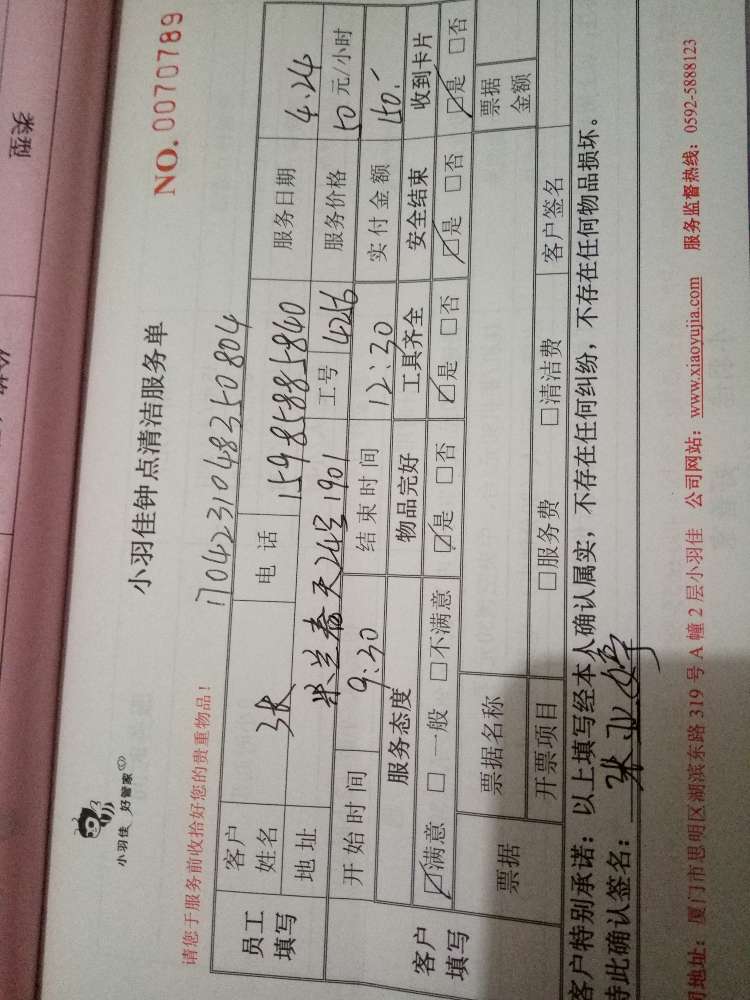 类型
小羽佳 好管家
小羽佳钟点清洁服务单
NO. 0070789
请您于服务前收拾好您的贵重物品！
1704231048350804
员工填写 客户姓名 张 电话 15985885840 服务日期 4.24
地址 米兰春天24号1901 工号 4216 服务价格 50元/小时
开始时间 9:30 结束时间 12:30 实付金额 150.-
客户填写 服务态度 物品完好 工具齐全 安全结束 收到卡片
☑满意 □一般 □不满意 ☑是 □否 ☑是 □否 ☑是 □否 ☑是 □否
票据 票据名称 票据金额
开票项目 □服务费 □清洁费 客户签名
客户特别承诺：以上填写经本人确认属实，不存在任何纠纷，不存在任何物品损坏。
特此确认签名：张亚婷
地址：厦门市思明区湖滨东路 319 号 A 幢 2 层小羽佳 公司网站：www.xiaoyujia.com 服务监督热线：0592-5888123